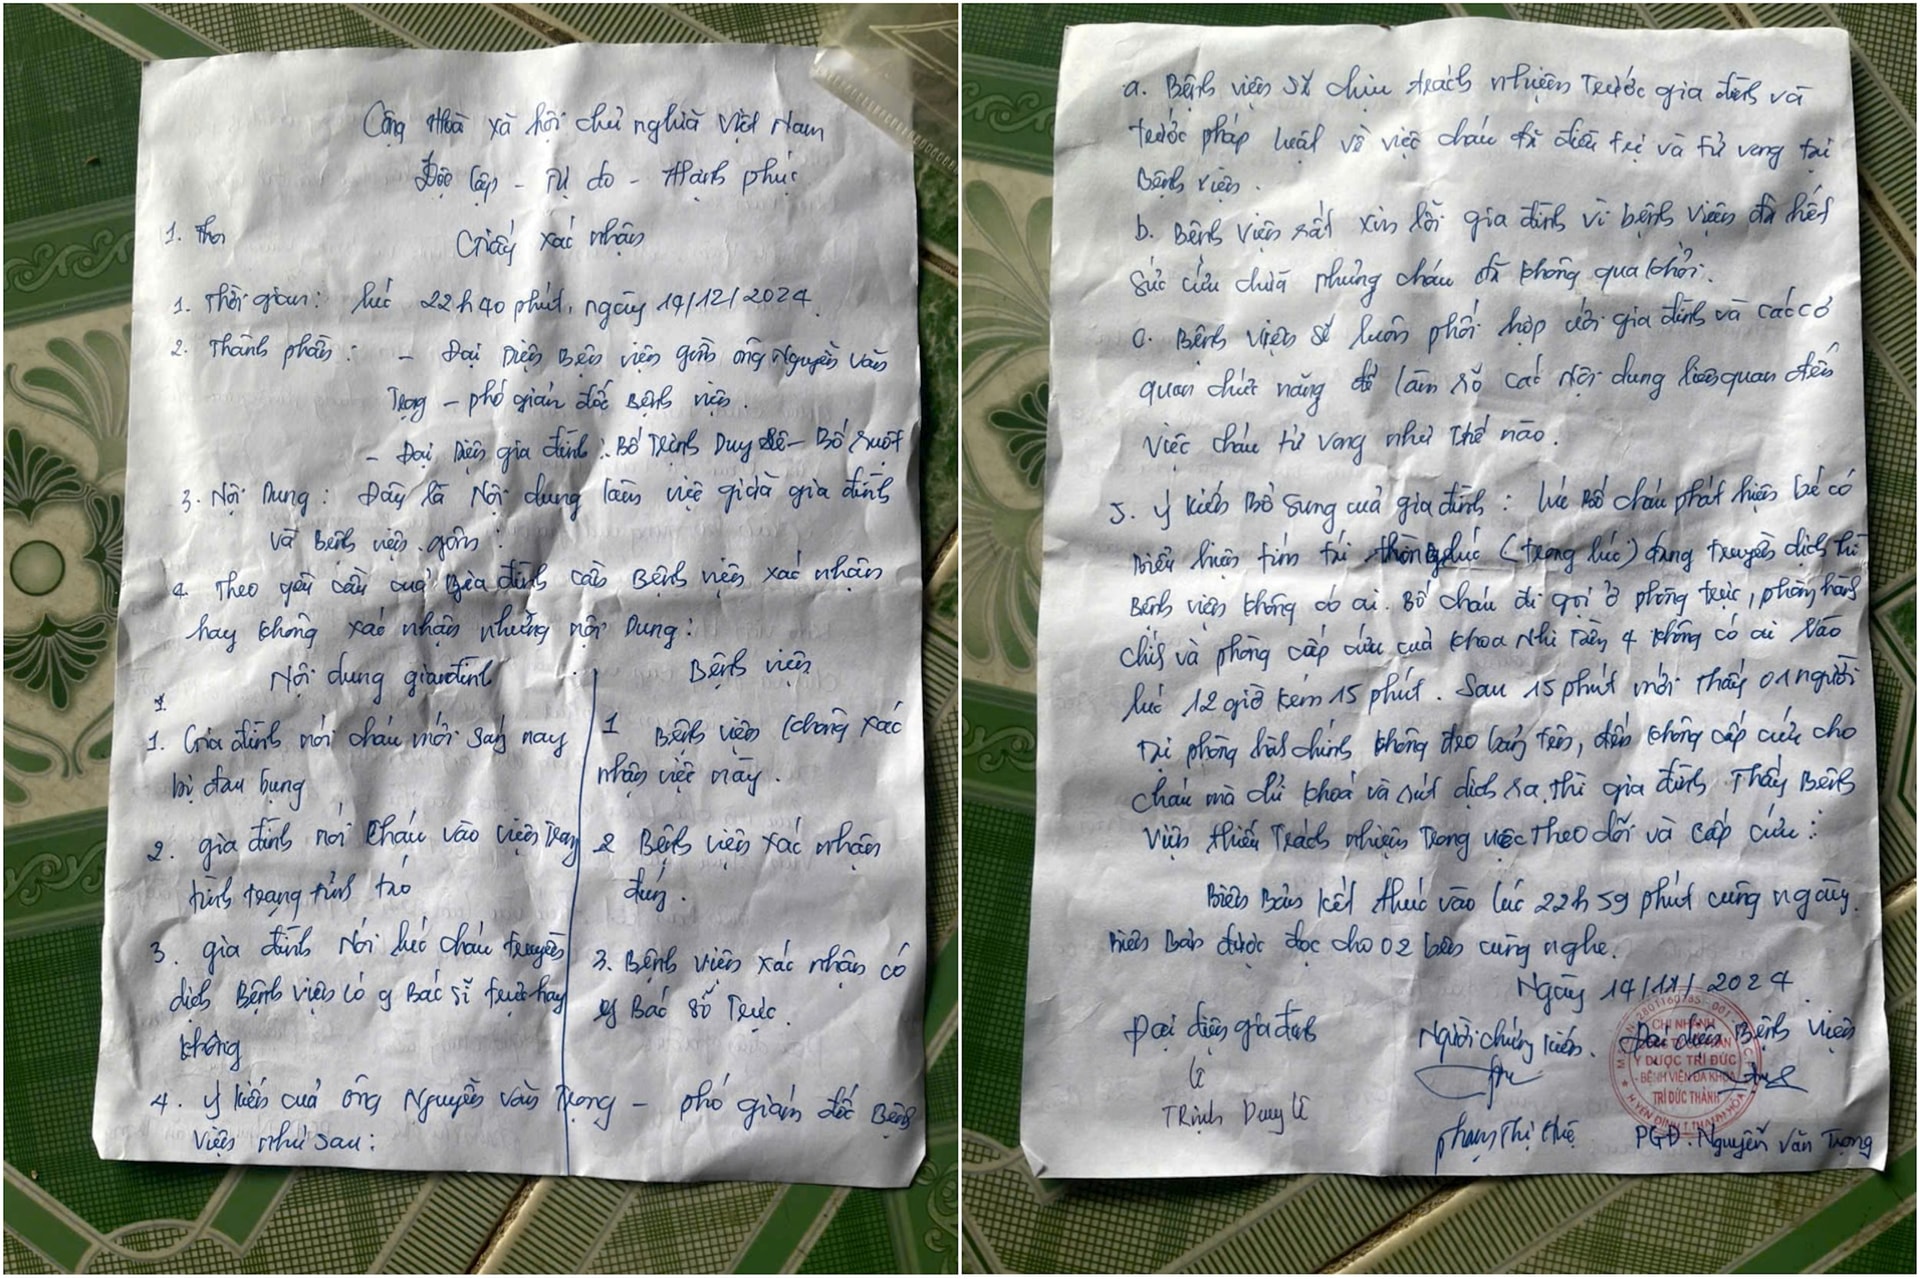 Cộng Hoà xã hội chủ nghĩa Việt Nam
Độc lập - Tự do - Hạnh phúc
1. Thơ
Giấy xác nhận
1. Thời gian: lúc 22h40 phút, ngày 14/12/2024.
2. Thành phần: - Đại Diện Bện viện gồm ông Nguyễn Văn
Trọng - phó giám đốc Bệnh viện.
- Đại Diện gia đình: Bố Trịnh Duy Lê - Bố ruột
3. Nội Dung: Đây là Nội dung làm việc giữa gia đình
và Bệnh viện gồm:
4. Theo yêu cầu của gia đình cần Bệnh viện xác nhận
hay không xác nhận những nội Dung:
Nội dung gia đình
Bệnh viện
1. Gia đình nói cháu mới sáng nay
bị đau bụng
2. gia đình nói cháu vào viện trong
tình trạng tỉnh táo
3. gia đình Nói lúc cháu truyền
dịch Bệnh viện có 9 Bác sĩ trực hay
không
1 Bệnh viện không xác
nhận việc này.
2 Bệnh viện xác nhận
đúng.
3. Bệnh viện xác nhận có
9 Bác sĩ Trực.
4. Ý kiến của ông Nguyễn Văn Trọng - phó giám đốc Bệnh
viện như sau:
a. Bệnh viện sẽ chịu trách nhiệm trước gia đình và
trước pháp luật về việc cháu đã điều trị và tử vong tại
Bệnh viện.
b. Bệnh viện rất xin lỗi gia đình vì bệnh viện đã hết
sức cứu chữa nhưng cháu đã không qua khỏi.
c. Bệnh viện sẽ luôn phối hợp với gia đình và các cơ
quan chức năng để làm rõ các Nội dung liên quan đến
việc cháu tử vong như thế nào.
5. Ý kiến Bổ sung của gia đình: lúc Bố cháu phát hiện bé có
Biểu hiện tím tái (trong lúc) đang truyền dịch thì
Bệnh viện không có ai. Bố cháu đi gọi ở phòng trực, phòng hành
chính và phòng cấp cứu của khoa Nhi Tầng 4 không có ai vào
lúc 12 giờ kém 15 phút. Sau 15 phút mới thấy 01 người
Tại phòng hành chính không đeo bảng tên, đến không cấp cứu cho
cháu mà chỉ khoá và rút dịch ra, thì gia đình Thấy Bệnh
viện thiếu Trách nhiệm trong việc theo dõi và cấp cứu:
Biên Bản kết thúc vào lúc 22h 59 phút cùng ngày.
Biên Bản được đọc cho 02 bên cùng nghe.
Ngày 14/11/2024.
Đại diện gia đình
Người chứng kiến.
Đại diện Bệnh viện
CHI NHÁNH
Y DƯỢC TRÍ ĐỨC
- BỆNH VIỆN ĐA KHOA
TRÍ ĐỨC THÀNH
H. YÊN ĐỊNH T. THANH HÓA
Lê
Trịnh Duy Lê
Phạm Thị Huệ
PGĐ. Nguyễn Văn Trọng